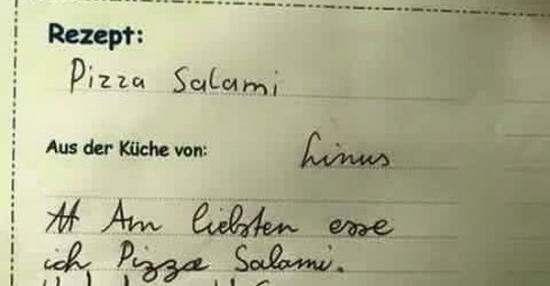 Rezept:
Pizza Salami
Aus der Küche von:
Linus
Am liebsten esse
ich Pizza Salami.